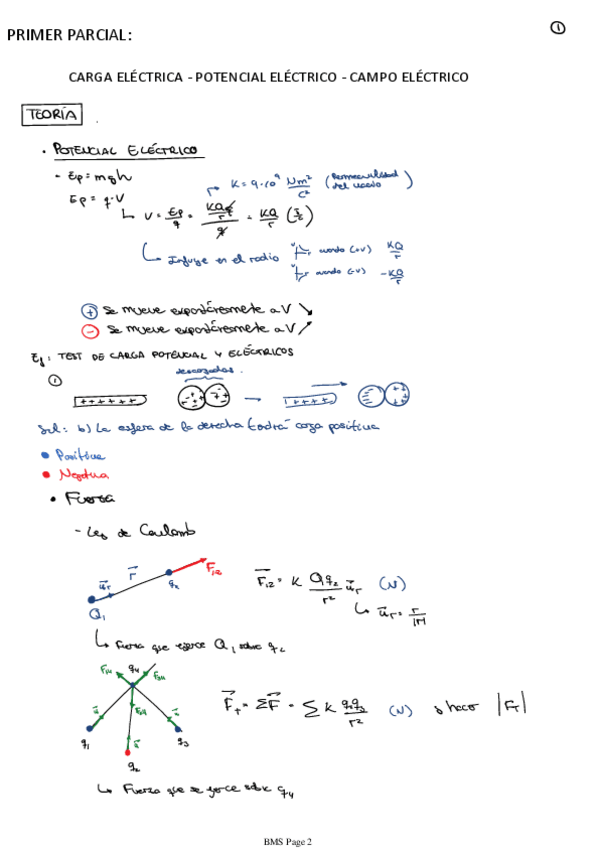 PRIMER PARCIAL:
①
CARGA ELÉCTRICA - POTENCIAL ELÉCTRICO - CAMPO ELÉCTRICO
TEORÍA
• POTENCIAL ELÉCTRICO
- Ep = mgh
K = 9·10⁹ Nm²/C² (Permeavilidad del vacío)
Ep = q·V
↳ V = Ep/q = (KQq/r)/q = KQ/r (J/C)
↳ Influye en el radio
cuando (+V) KQ/r
cuando (-V) -KQ/r
⊕ Se mueve espontáneamente a V ↘
⊖ Se mueve espontáneamente a V ↗
Ej: TEST DE CARGA POTENCIAL Y ELÉCTRICOS
descargadas.
①
++++++
Sol: b) La esfera de la derecha tendrá carga positiva
• Positiva
• Negativa
• Fuerza
- Ley de Coulomb
r
F₁₂
u_r
q₂
Q₁
F₁₂ = K Q₁q₂/r² u_r (N)
↳ u_r = r/|r|
↳ Fuerza que ejerce Q₁ sobre q₂
F₁₄ q₄ F₃₄
F₂₄
q₁ q₂ q₃
F_T = ΣF = Σ K (N) |F_T|
↳ Fuerza que se ejerce sobre q₄
BMS Page 2